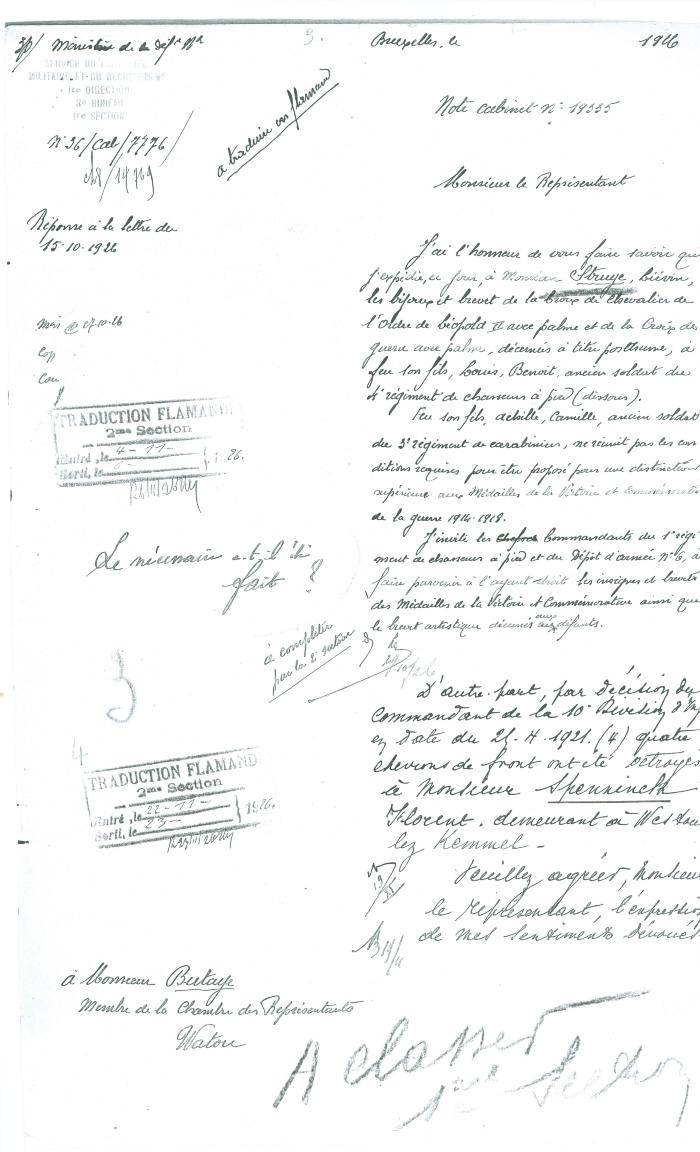 Ministère de la Déf. Nle
SERVICE DU
MILITAIRE ET DU RECRUTEMENT
1re DIRECTION
3e BUREAU
1re SECTION
N° 36/Cab/7776/
14769
Réponse à la lettre du
15-10-1926
à traduire en flamand
3.
Bruxelles, le 1926
Note cabinet N° 19335
Monsieur le Représentant
J'ai l'honneur de vous faire savoir que
j'expédie, ce jour, à Monsieur Struye,
les bijoux et brevet de la Croix de Chevalier de
l'Ordre de Léopold II avec palme et de la Croix de
guerre avec palme, décernés à titre posthume, à
feu son fils, Louis, Benoit, ancien soldat du
4e régiment de chasseurs à pied (dissous).
Feu son fils, Achille, Camille, ancien soldat
du 3e régiment de carabiniers, ne réunit pas les con
ditions requises pour être proposé pour une distinction
supérieure aux Médailles de la Victoire et Commémorative
de la guerre 1914-1918.
J'invite les Commandants du 1er régi
ment de chasseurs à pied et du Dépôt d'armée N° 6, à
faire parvenir à l'ayant droit les insignes et brevets
des Médailles de la Victoire et Commémorative ainsi que
le brevet artistique décernés aux défunts.
D'autre part, par décision du
Commandant de la 10e Division d'
en date du 21.4.1921. (4) quatre
chevrons de front ont été octroyés
à Monsieur Spenninck
Florent. demeurant à
lez Kemmel -
Veuillez agréer, Monsieur
le représentant, l'expression
de mes sentiments dévoués
27-10-26
Cop
TRADUCTION FLAMAND
2me Section
Entré, le 4-11-
Sorti, le
1926.
Le nécessaire a-t-il été
fait ?
à compléter
par la 2e section
3
4
TRADUCTION FLAMAND
2me Section
Entré, le 22-11-
Sorti, le 23-
1926.
à Monsieur Butaye
Membre de la Chambre des Représentants
Watou
A classer
1ère Section